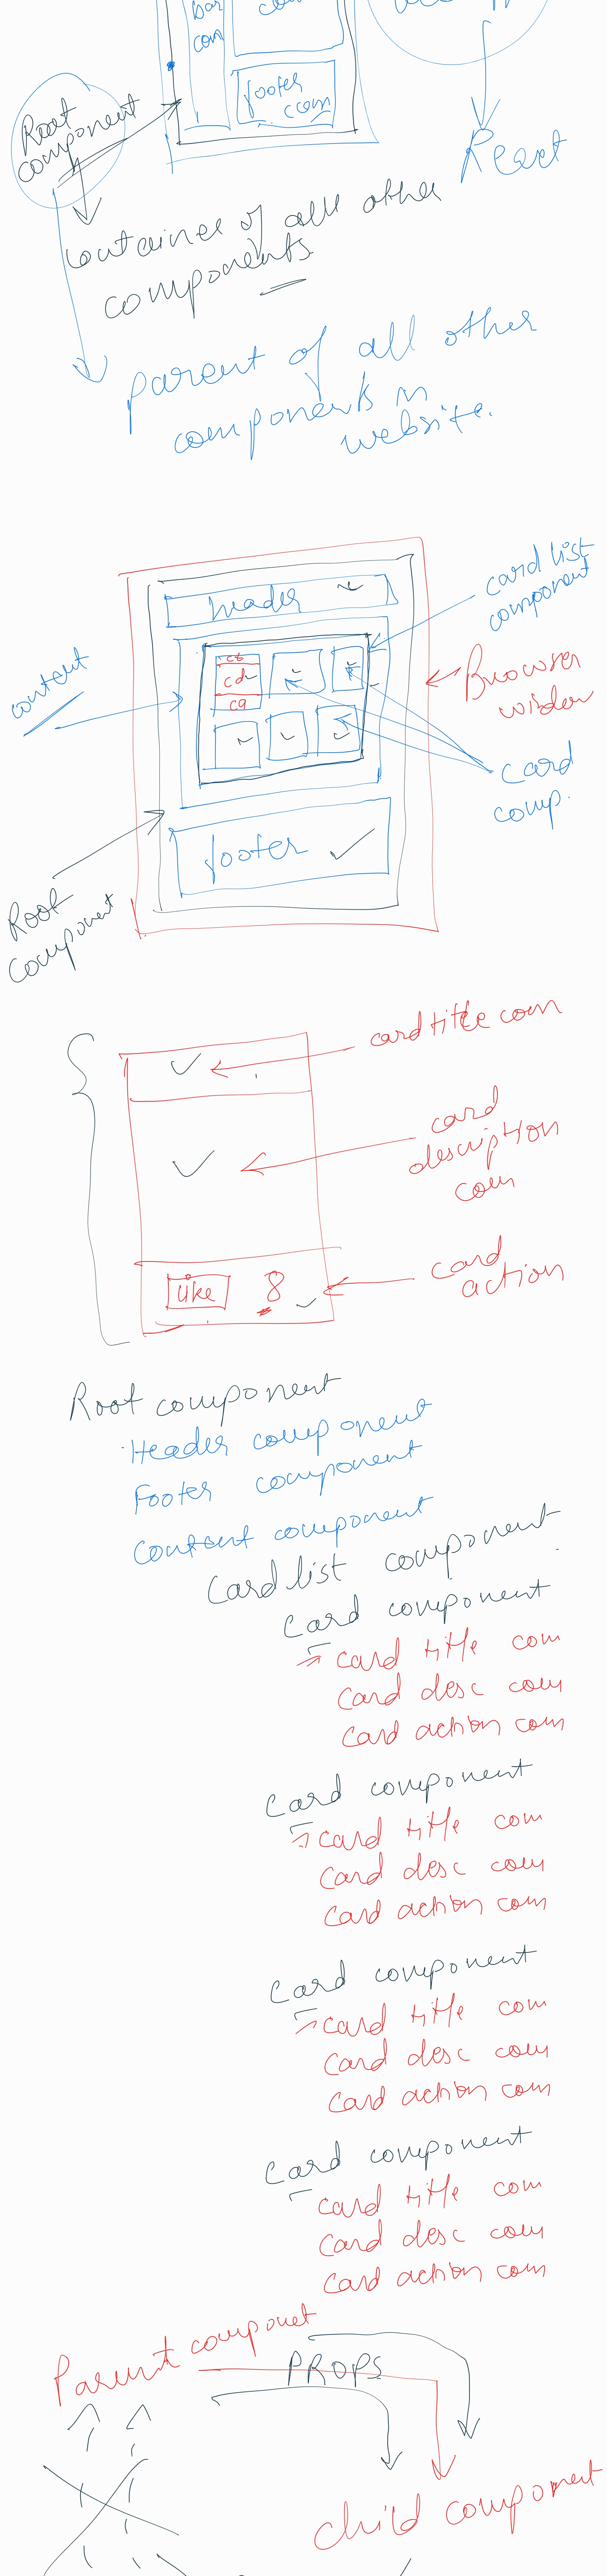 bar
com
footer
com
Root
component
React
container of all other
components
parent of all other
components in
website.
header
card list
component
content
ct
cd
ca
Browser
window
card
comp.
footer
Root
component
card title com
card
description
com
card
action
Like 8
Root component
Header component
Footer component
Content component
Card list component
Card component
card title com
card desc com
card action com
Card component
card title com
card desc com
card action com
Card component
card title com
card desc com
card action com
Card component
card title com
card desc com
card action com
Parent componet
PROPS
child component